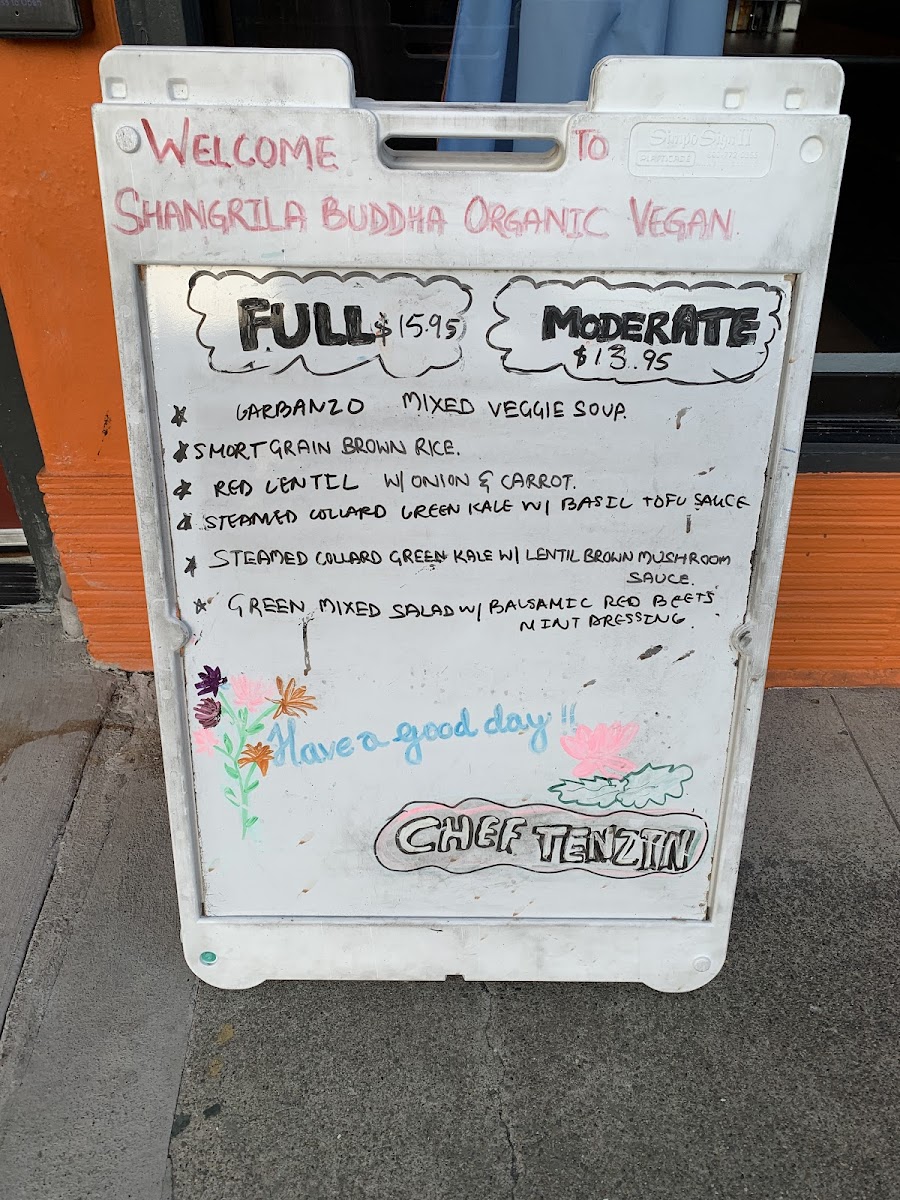 WELCOME TO
SHANGRILA BUDDHA ORGANIC VEGAN
FULL $15.95
MODERATE
$13.95
GARBANZO MIXED VEGGIE SOUP.
SHORT GRAIN BROWN RICE.
RED LENTIL W/ ONION & CARROT.
STEAMED COLLARD GREEN KALE W/ BASIL TOFU SAUCE
STEAMED COLLARD GREEN KALE W/ LENTIL BROWN MUSHROOM
SAUCE.
GREEN MIXED SALAD W/ BALSAMIC RED BEETS
MINT DRESSING.
Have a good day!!
CHEF TENZIN